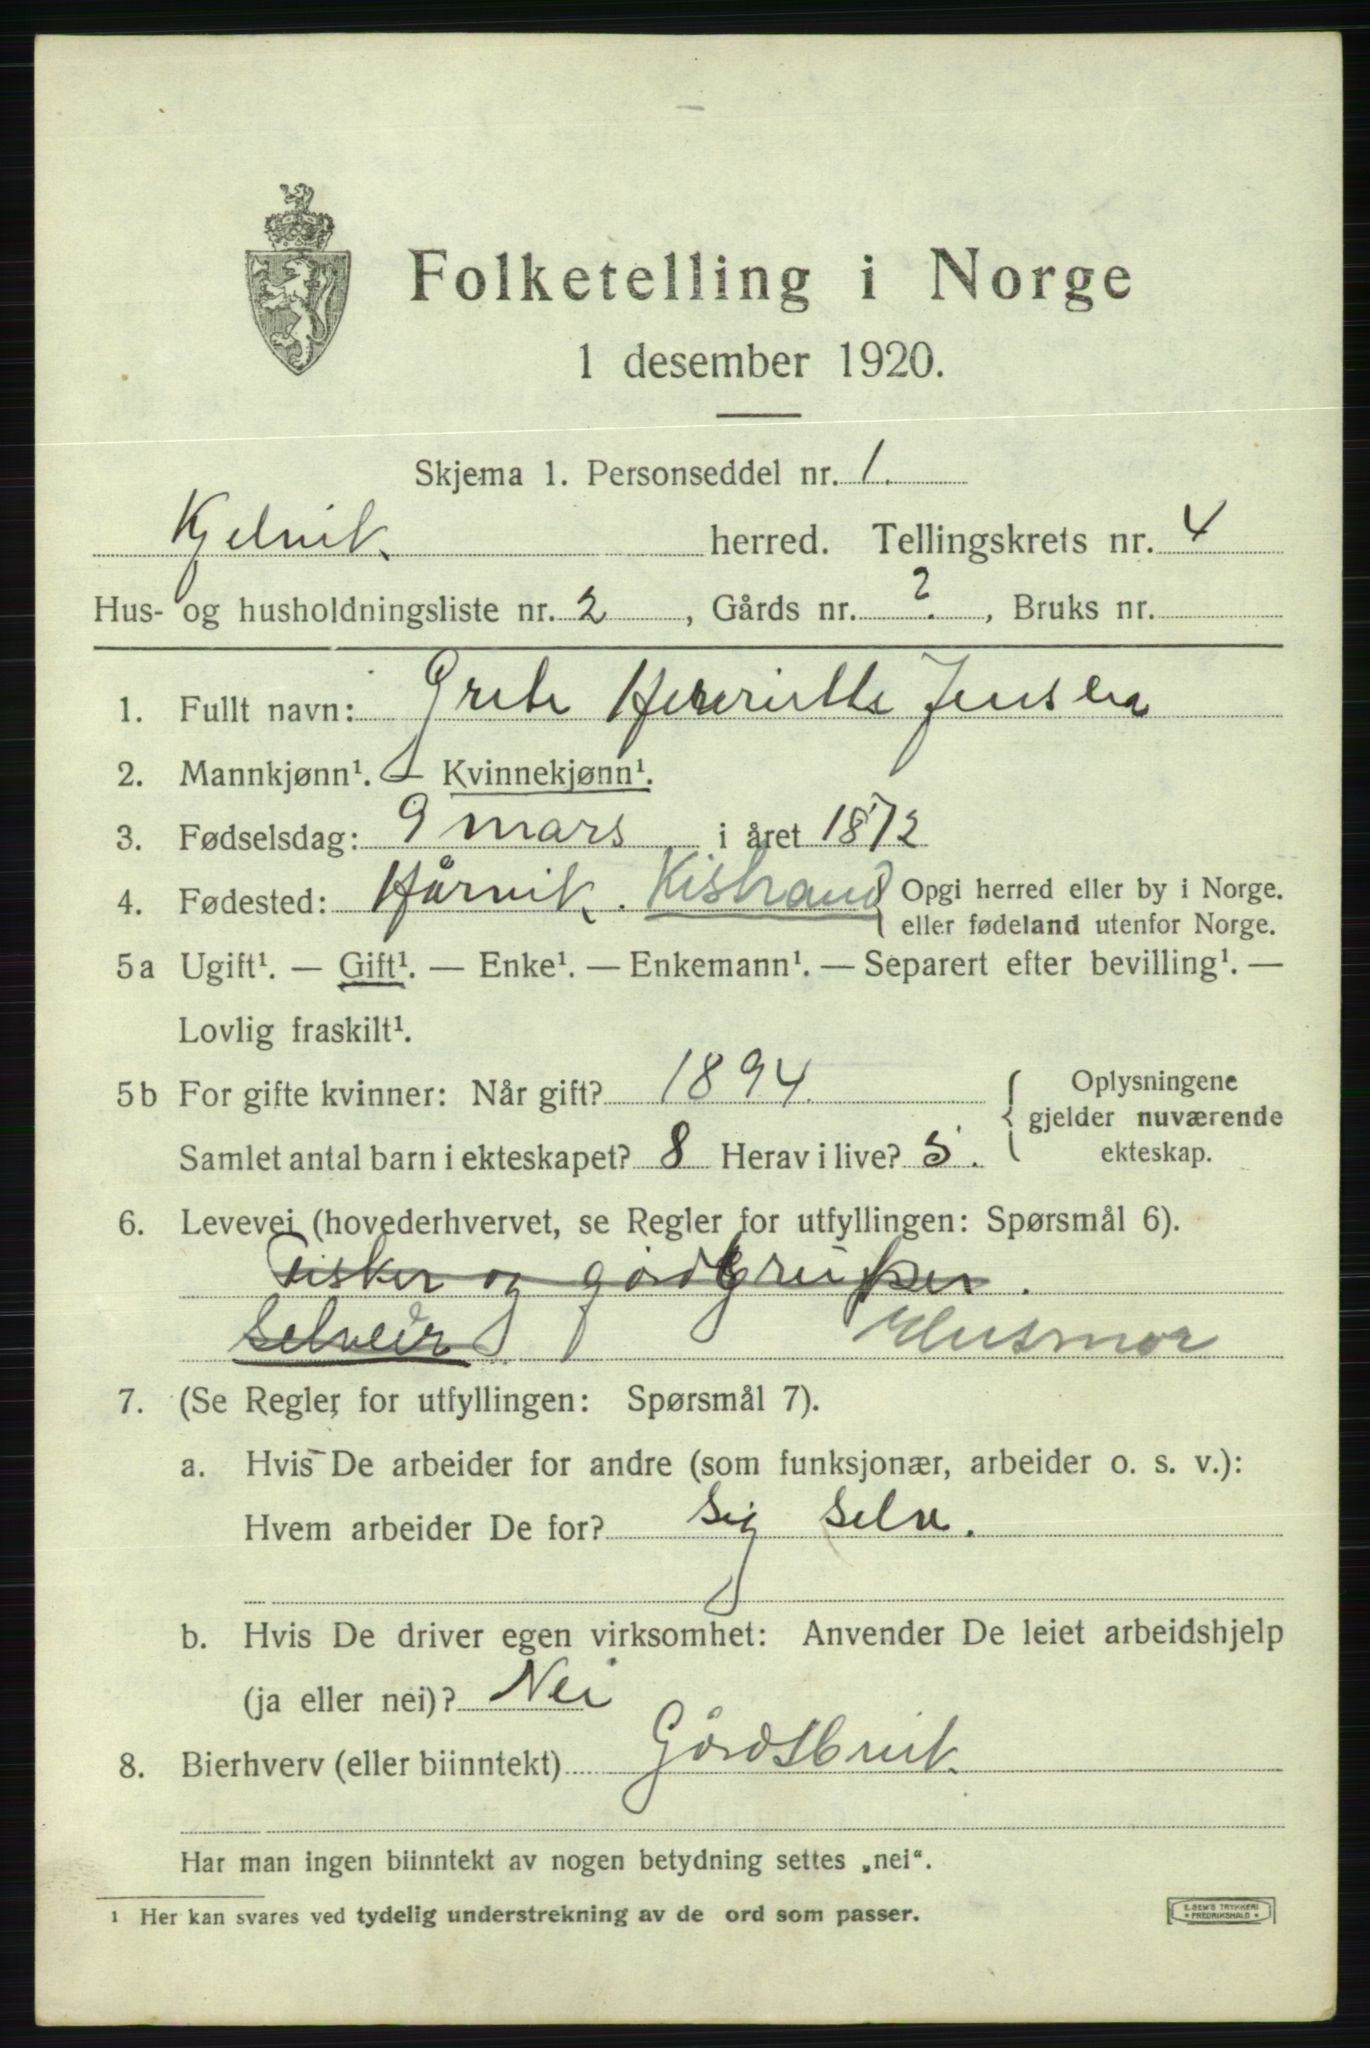 Folketelling i Norge
1 desember 1920.
Skjema 1. Personseddel nr. 1.
Kjelvik herred. Tellingskrets nr. 4
Hus- og husholdningsliste nr. 2, Gårds nr. ?, Bruks nr.
1. Fullt navn: Grete Henriette Jensen
2. Mannkjønn¹. — Kvinnekjønn¹.
3. Fødselsdag: 9 mars i året 1872
4. Fødested: Hårvik. Kistrand { Opgi herred eller by i Norge.
eller fødeland utenfor Norge.
5a Ugift¹. — Gift¹. — Enke¹. — Enkemann¹. — Separert efter bevilling¹. —
Lovlig fraskilt¹.
5b For gifte kvinner: Når gift? 1894.
Samlet antal barn i ekteskapet? 8 Herav i live? 5.
{ Oplysningene
gjelder nuværende
ekteskap.
6. Levevei (hovederhvervet, se Regler for utfyllingen: Spørsmål 6).
Fisker og gårdbruker.
Selveier Husmor
7. (Se Regler for utfyllingen: Spørsmål 7).
a. Hvis De arbeider for andre (som funksjonær, arbeider o. s. v.):
Hvem arbeider De for? Sig selv.
b. Hvis De driver egen virksomhet: Anvender De leiet arbeidshjelp
(ja eller nei)? Nei
8. Bierhverv (eller biinntekt) Gårdsbruk.
Har man ingen biinntekt av nogen betydning settes „nei“.
¹ Her kan svares ved tydelig understrekning av de ord som passer.
E. SEM'S TRYKKERI
• FREDRIKSHALD •